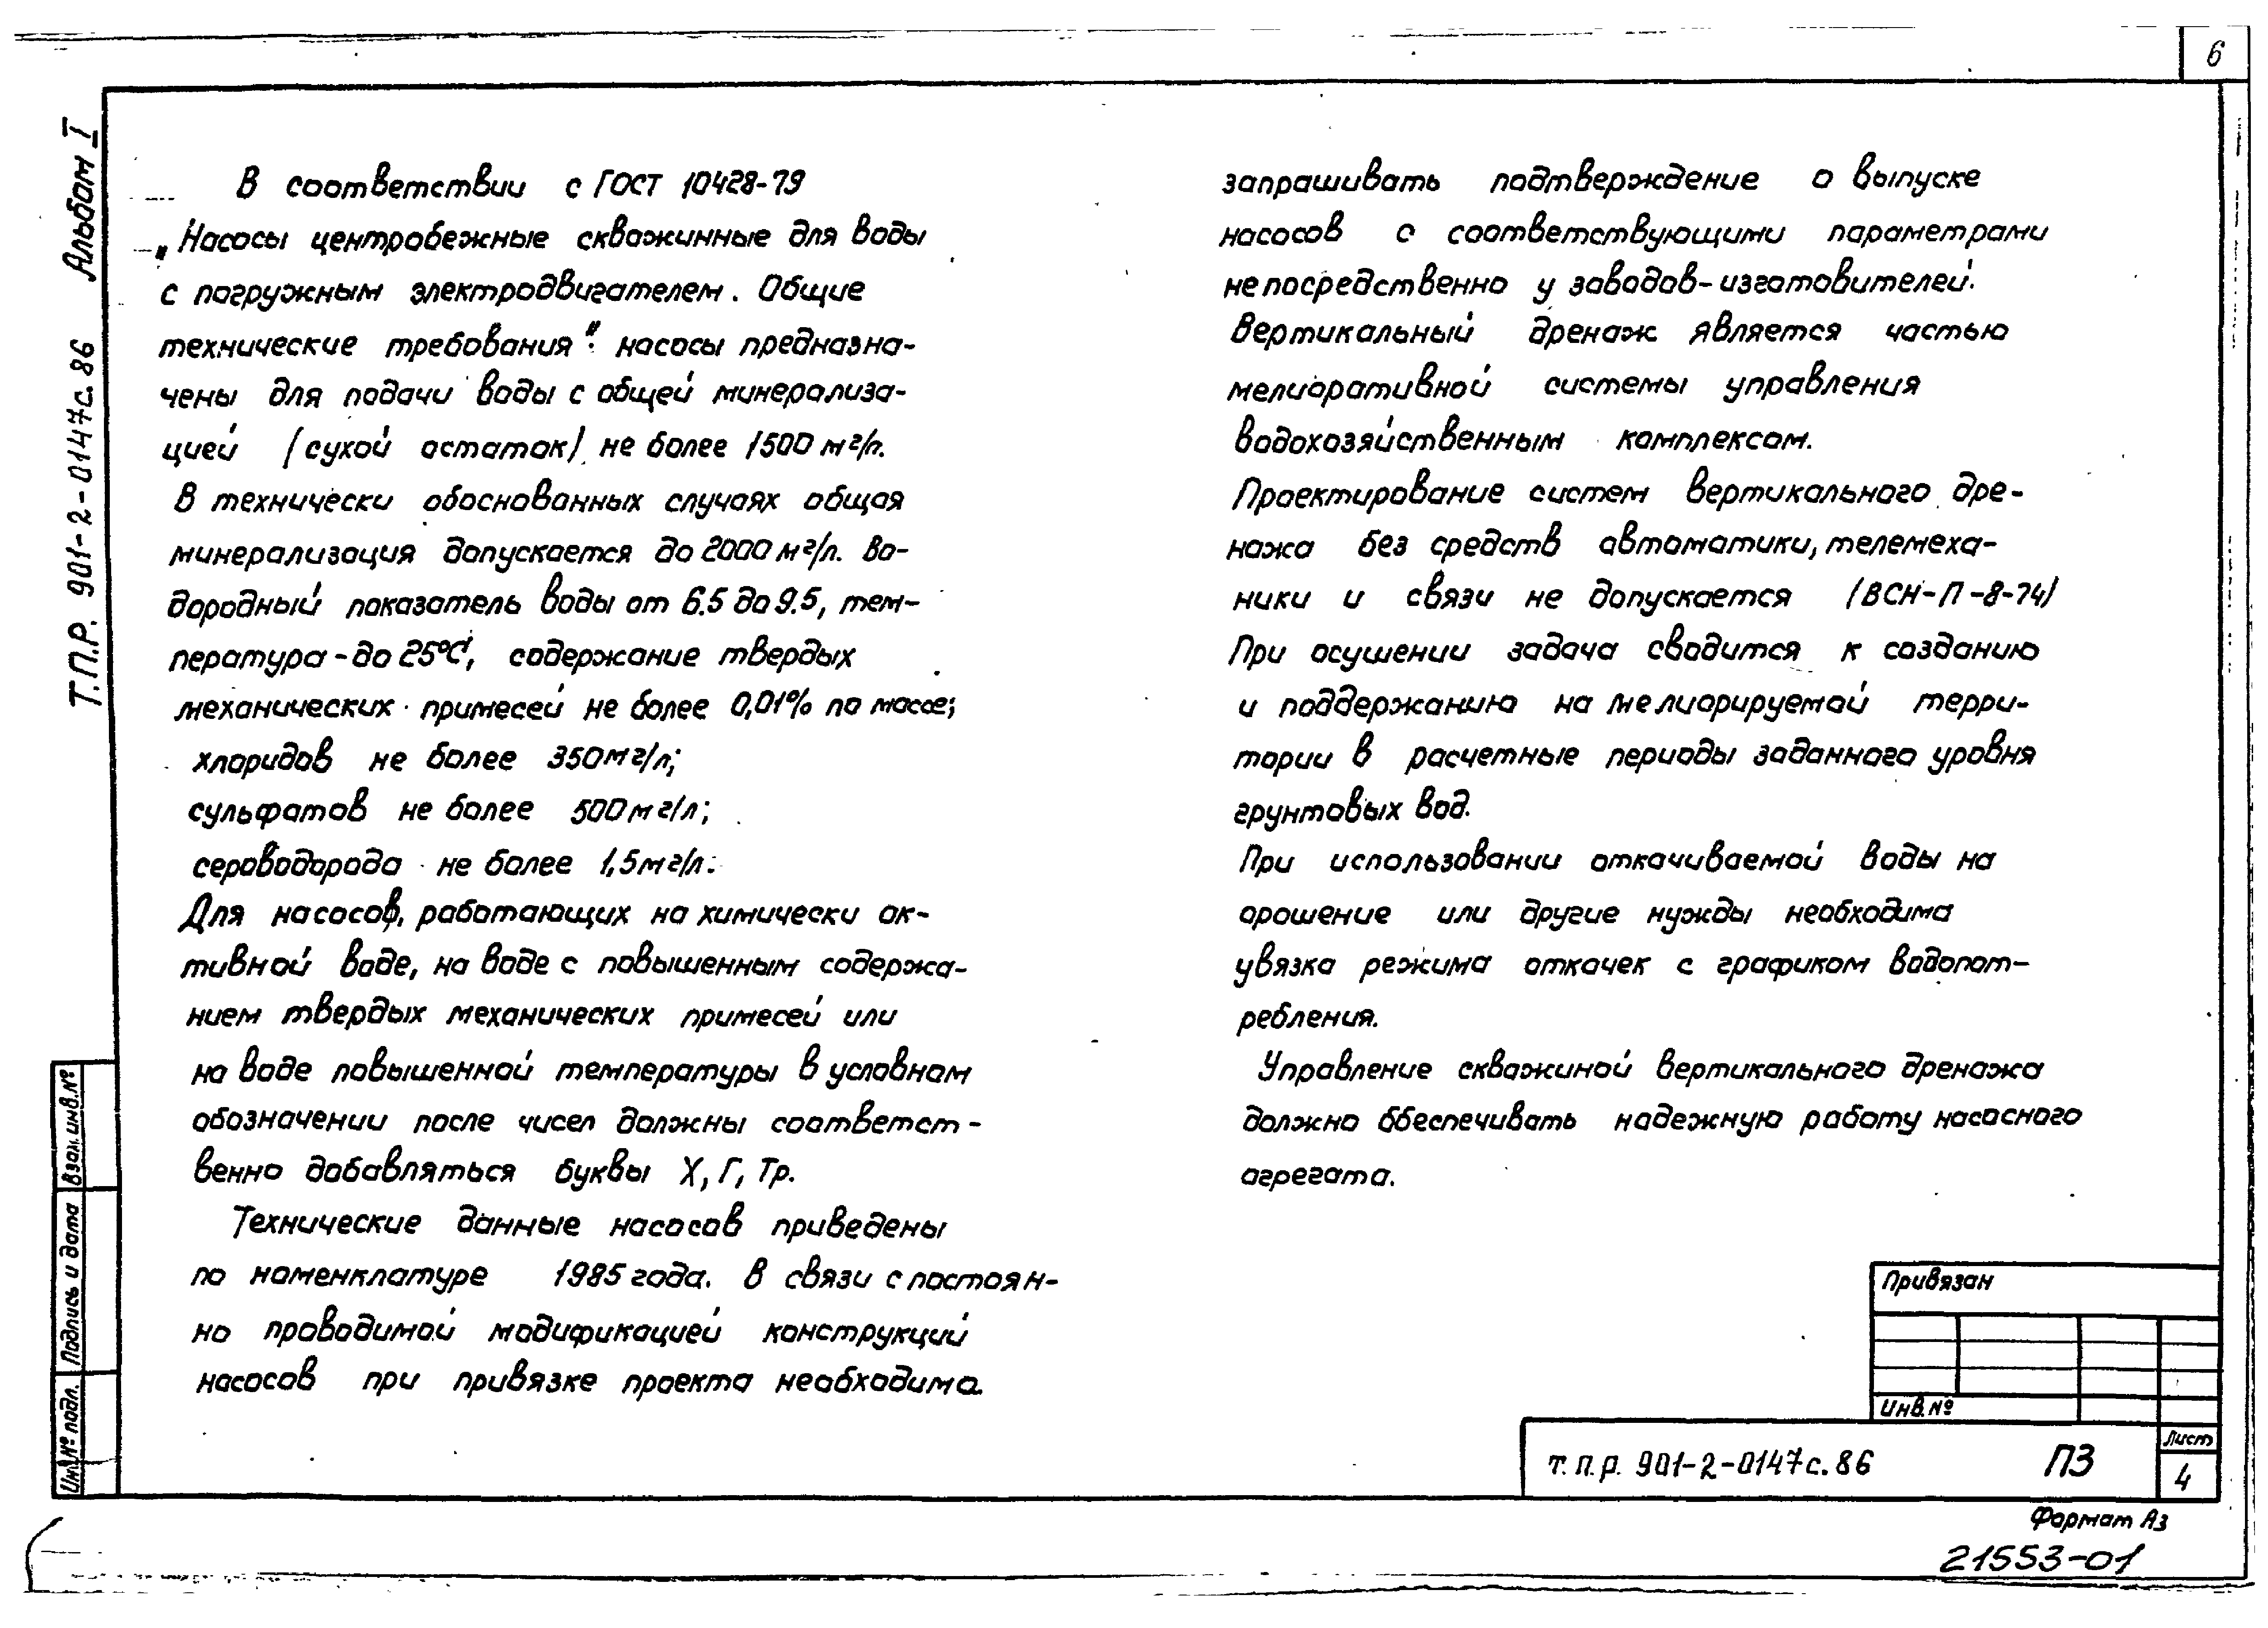 6
Альбом I
Т.П.Р. 901-2-0147с.86
В соответствии с ГОСТ 10428-79
„Насосы центробежные скважинные для воды
с погружным электродвигателем. Общие
технические требования". насосы предназна-
чены для подачи воды с общей минерализа-
цией (сухой остаток) не более 1500 мг/л.
В технически обоснованных случаях общая
минерализация допускается до 2000 мг/л. Во-
дородный показатель воды от 6.5 до 9.5, тем-
пература - до 25°С, содержание твердых
механических примесей не более 0,01% по массе;
хлоридов не более 350мг/л;
сульфатов не более 500мг/л;
сероводорода не более 1,5мг/л.
Для насосов, работающих на химически ак-
тивной воде, на воде с повышенным содержа-
нием твердых механических примесей или
на воде повышенной температуры в условном
обозначении после чисел должны соответст-
венно добавляться буквы Х, Г, Тр.
Технические данные насосов приведены
по номенклатуре 1985 года. В связи с постоян-
но проводимой модификацией конструкций
насосов при привязке проекта необходимо
запрашивать подтверждение о выпуске
насосов с соответствующими параметрами
непосредственно у заводов-изготовителей.
Вертикальный дренаж является частью
мелиоративной системы управления
водохозяйственным комплексом.
Проектирование систем вертикального дре-
нажа без средств автоматики, телемеха-
ники и связи не допускается (ВСН-П-8-74)
При осушении задача сводится к созданию
и поддержанию на мелиорируемой терри-
тории в расчетные периоды заданного уровня
грунтовых вод.
При использовании откачиваемой воды на
орошение или другие нужды необходима
увязка режима откачек с графиком водопот-
ребления.
Управление скважиной вертикального дренажа
должно обеспечивать надежную работу насосного
агрегата.
Взам. инв. №
Подпись и дата
Инв.№ подл.
Привязан
Инв.№
т.п.р. 901-2-0147с.86
ПЗ
Лист
4
Формат А3
21553-01